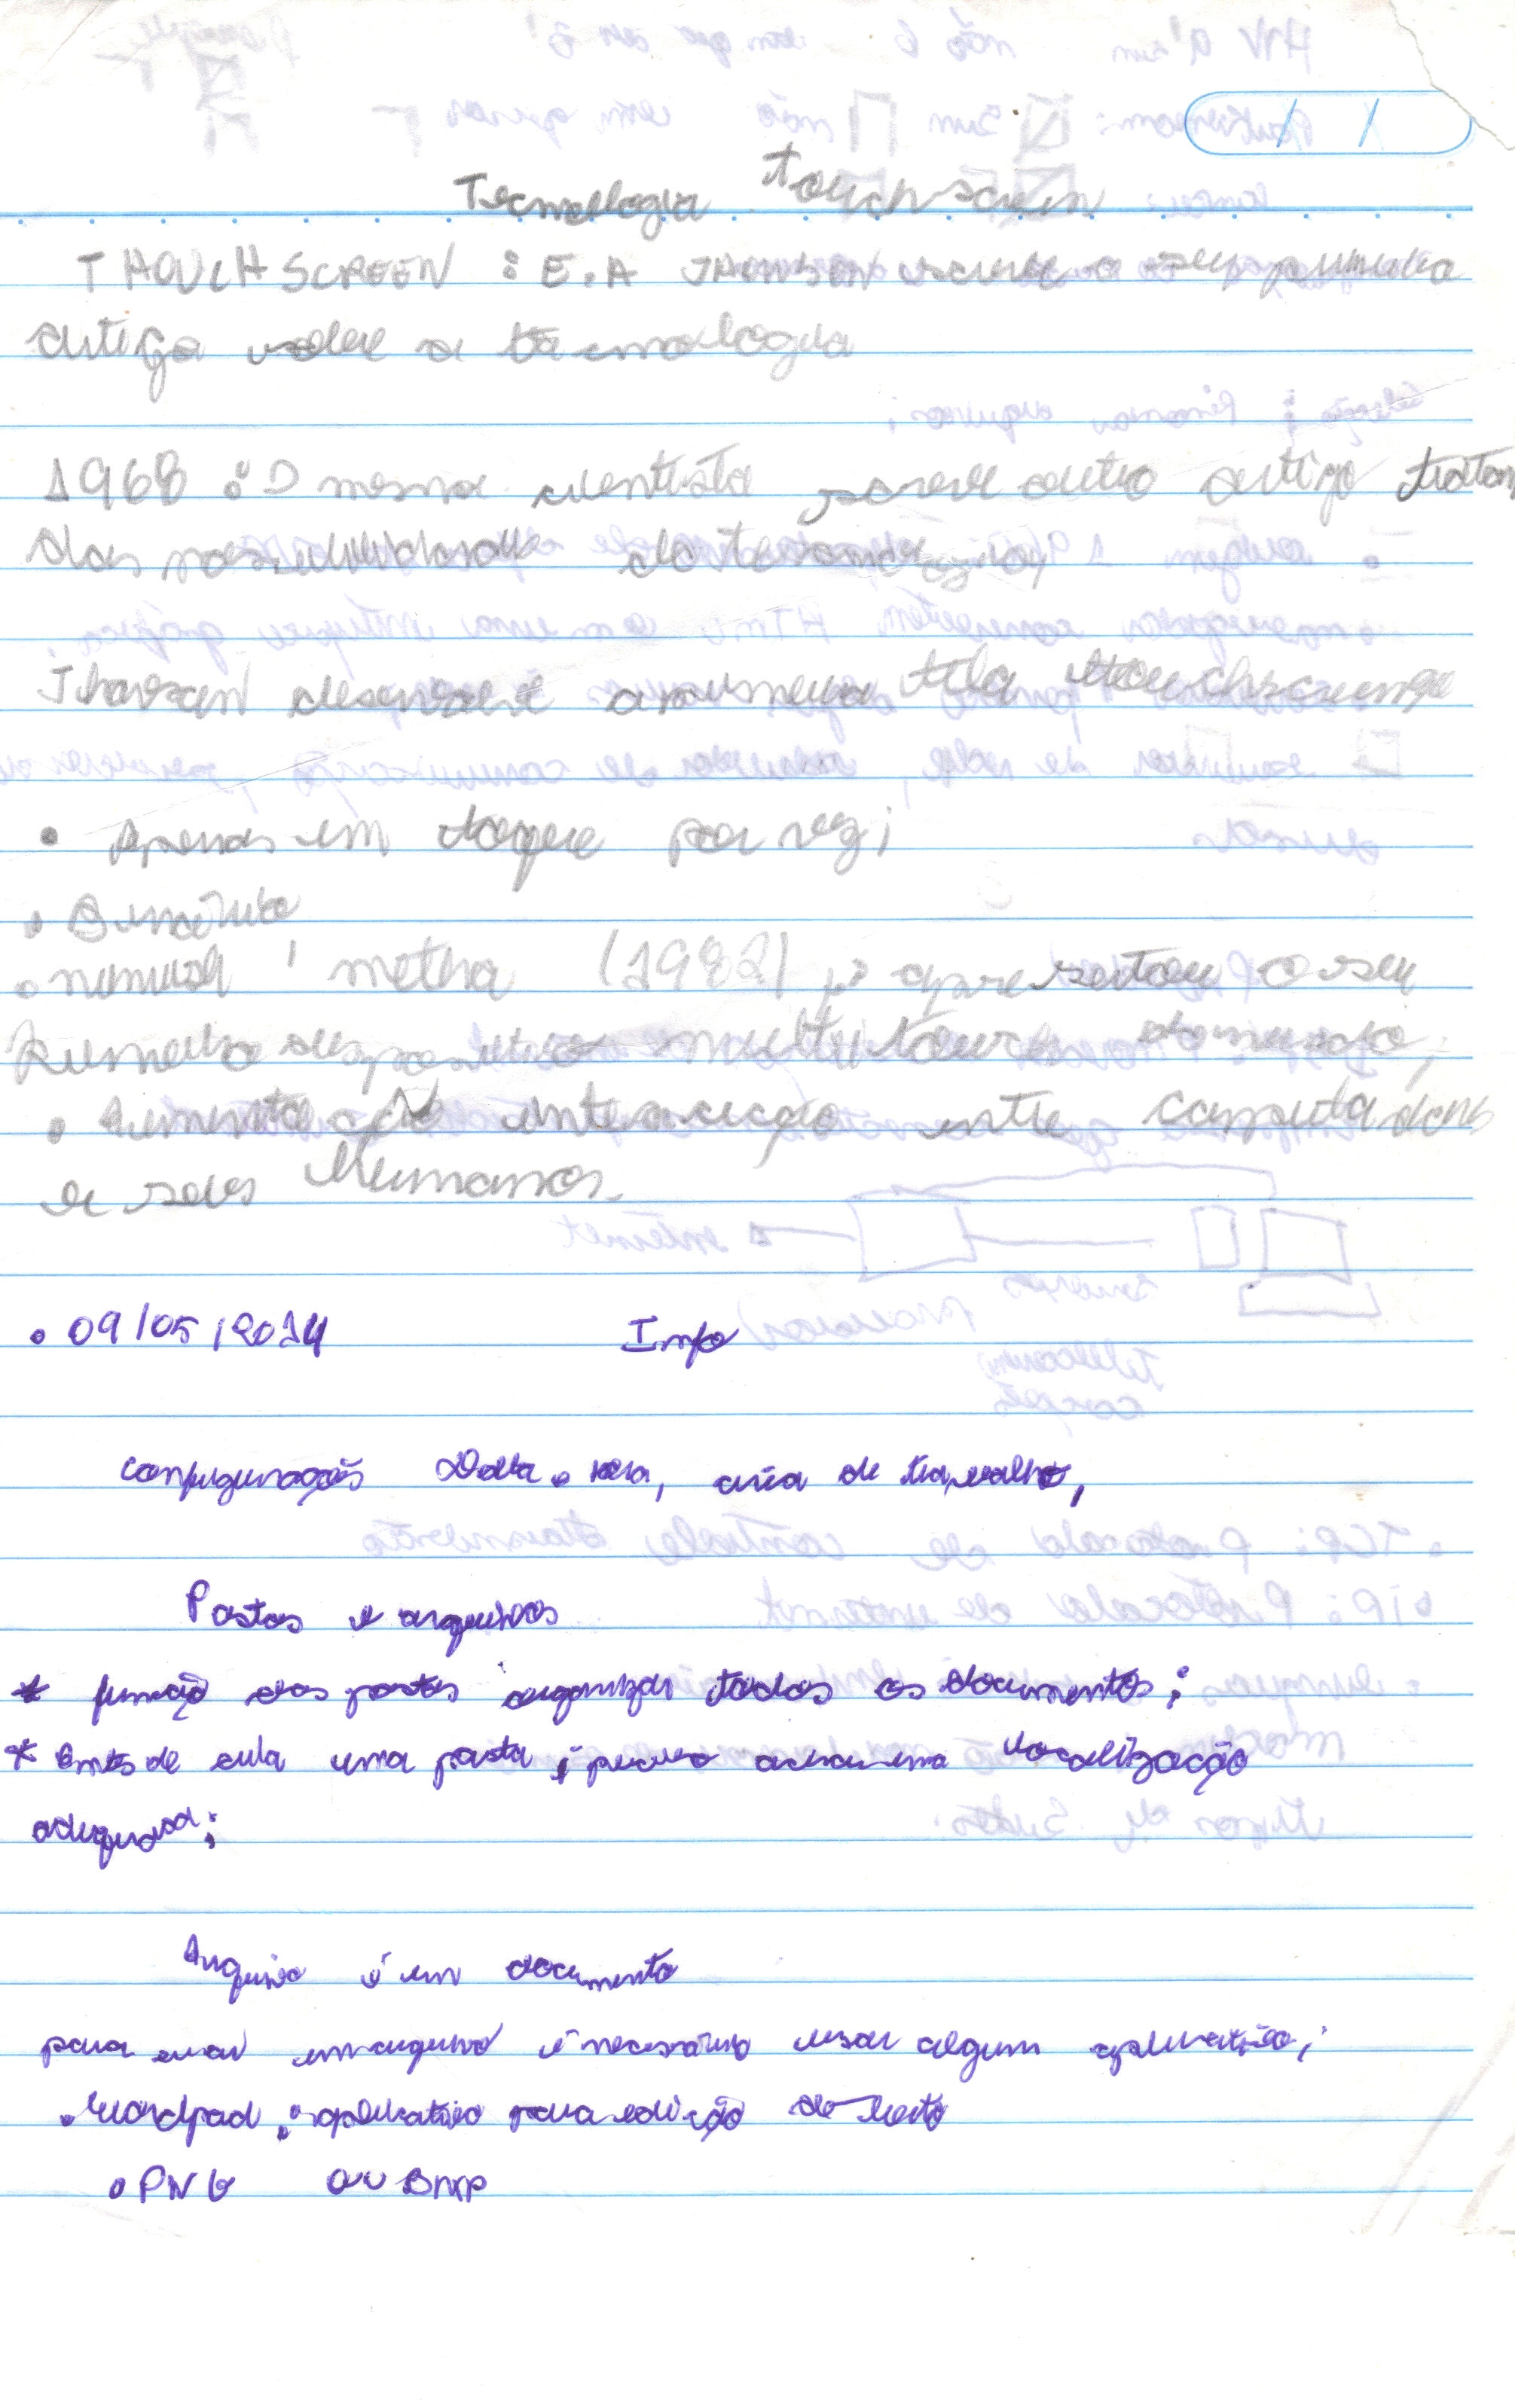 Tecnologia touch screen
THOUCH SCREEN : E.A JHONSON escreve o seu primeiro
artigo sobre a tecnologia
1968 : O mesmo cientista escreve outro artigo tratan
das possibilidades da tecnologia
Jhonson desenvolve a primeira tela touchscreen
• Apenas um toque por vez;
• Binário
• nimish metha (1982) : apresentou o seu
Primeiro dispositivo multitouch do mundo;
• Aumenta a interacção entre computadores
e seres Humanos.
• 09/05/2014 Info
configurações Data e hora, área de trabalho,
Pastas e arquivos
* função das pastas organizar todos os documentos;
* Antes de criar uma pasta é preciso achar uma localização
adequada;
Arquivo é um documento
para criar um arquivo é necessário usar algum aplicativo;
• Wordpad : aplicativo para edição de texto
• PNG ou BMP